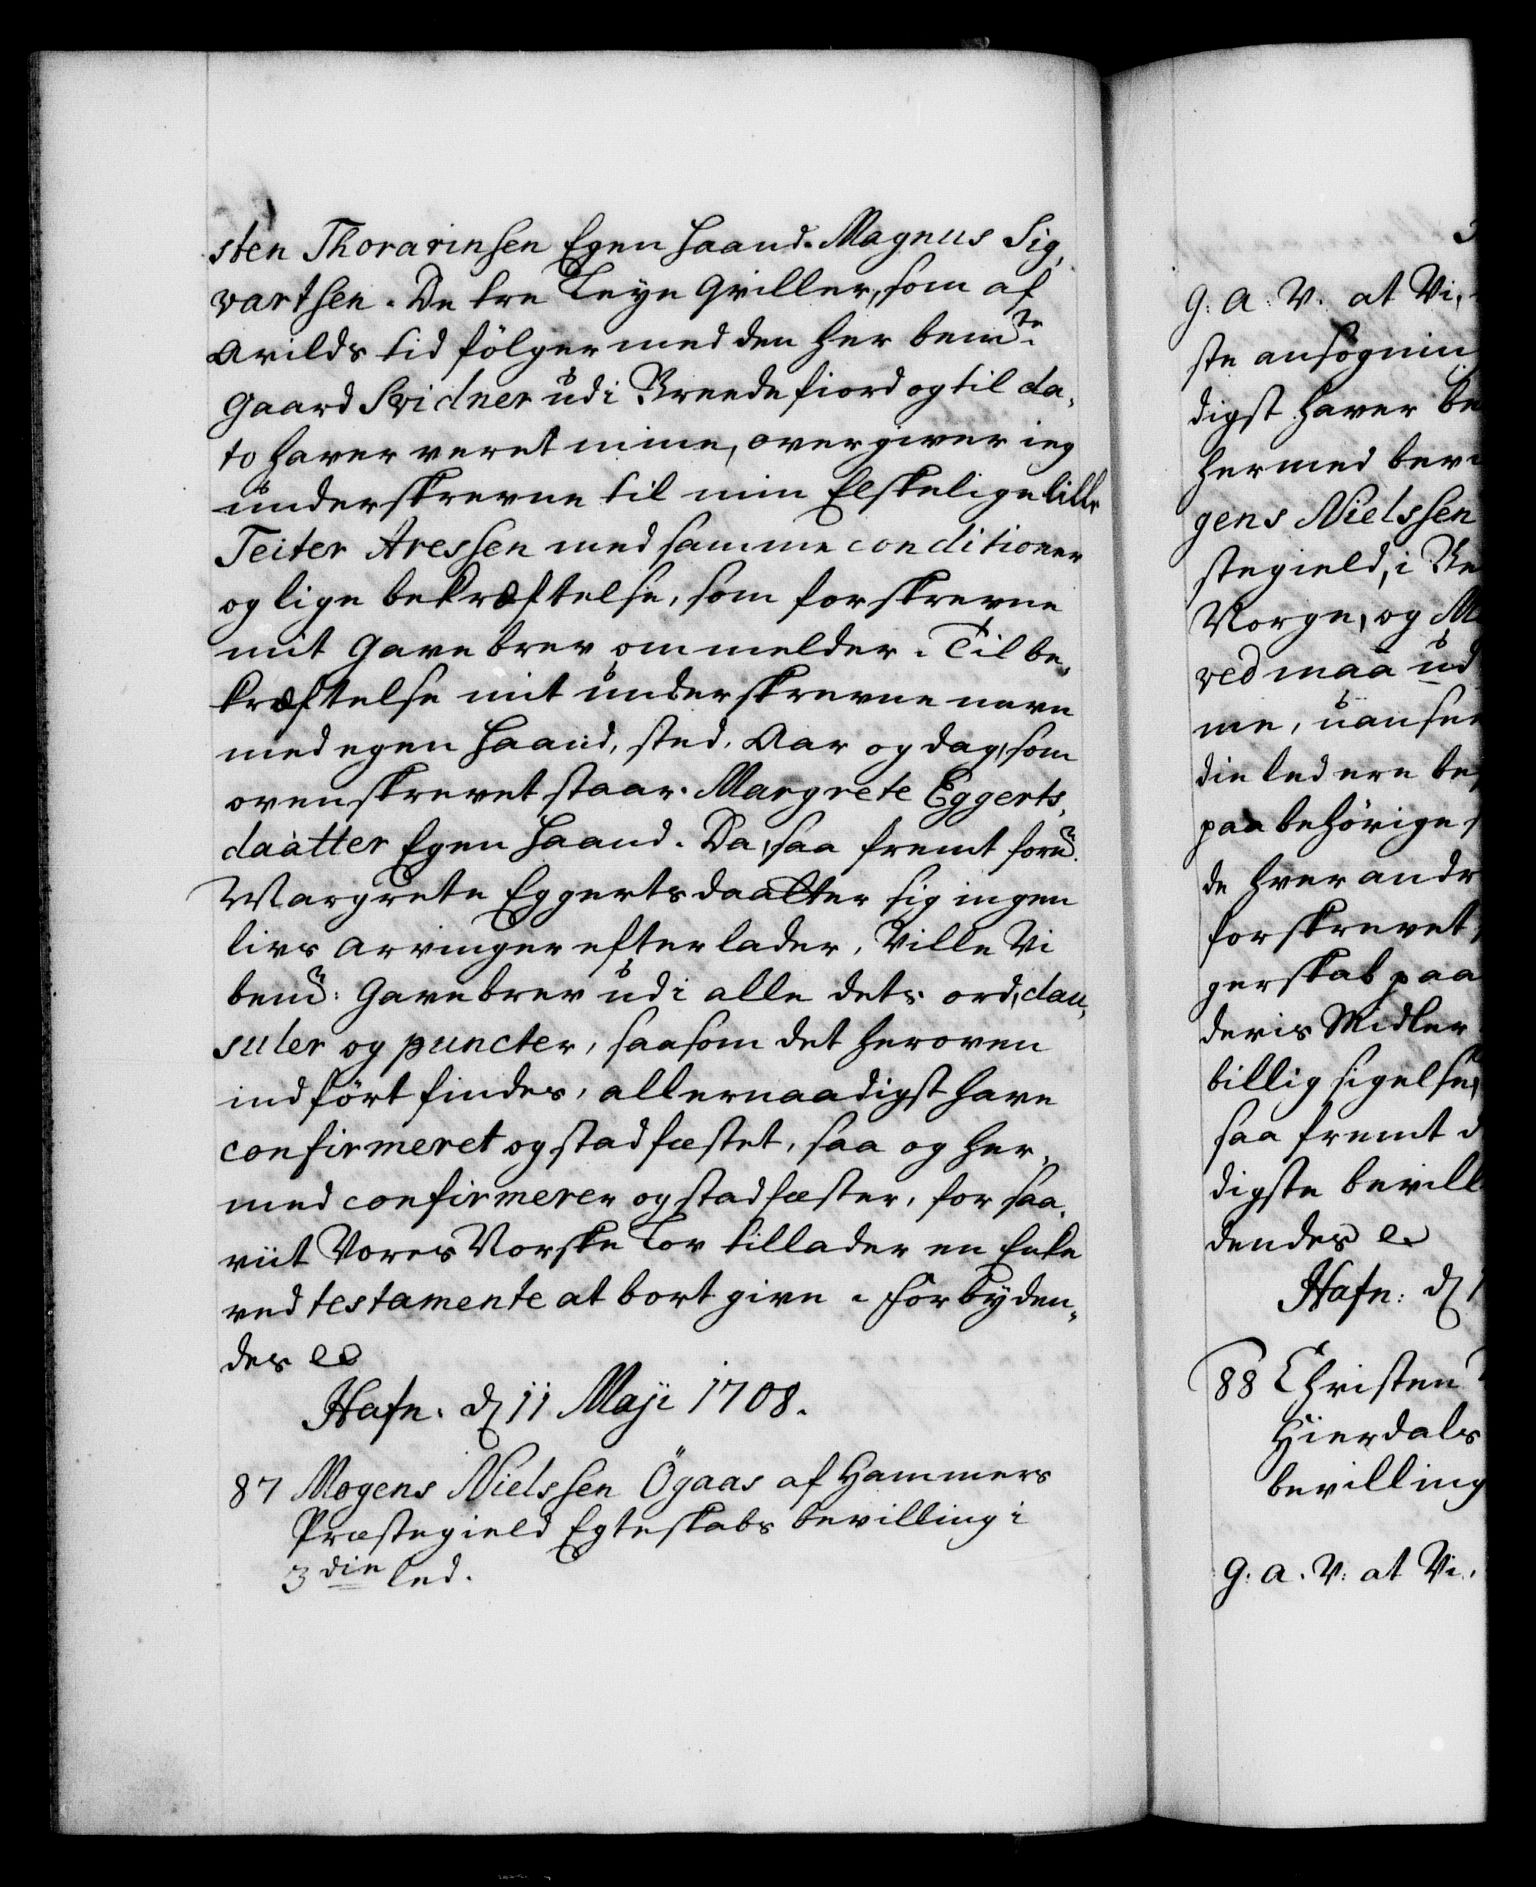 sten Thorarinsen Egen Haand. Magnus Sig,
vartsen. De tre Leye Qviller, som af
Arilds tid fölger med den her bem.te
Gaard Svidner udi Breedefiord og til da,
to haver veret mine, overgiver ieg
underskrevne til min Elskelige lille
Teiter Aressen med samme conditioner
og lige bekræftelse, som forskrevne
mit Gave brev ommelder. Til be,
kræftelse mit underskrevne navn
med egen Haand, sted, Aar og dag, som
ovenskrevet staar. Margrete Eggerts,
daatter Egen Haand. Da, saa fremt forn:
Margrete Eggertsdaatter sig ingen
livs arvinger efterlader, Ville Vi
bem: Gavebrev udi alle dets ord, clau,
suler og puncter, saasom det heroven
indfört findes, allernaadigst have
confirmeret og stadfæstet, saa og her,
med confirmerer og stadfæster, for saa,
viit Vores Norske Lov tillader en Enke
ved testamente at bort give. Forbyden,
des e.
Hafn. d 11 Maji 1708.
87 Mogens Nielssen Ögaas af Hammers
Præstegield Egteskabs bevilling i
3die led.
G: A: V: at Vi,
ste ansögnin
digst haver be
hermed bevi
gens Nielssen
stegield, i
Norge, og
ved maa ud
me, uansee
die led ere be
paa behörige
de hver andr
forskrevet
gerskab paa
deris Midler
billig sigelse,
saa fremt d
digste bevill
dendes e.
Hafn: d
88 Christen
Hierdals
bevilling
G. A. V: at Vi,